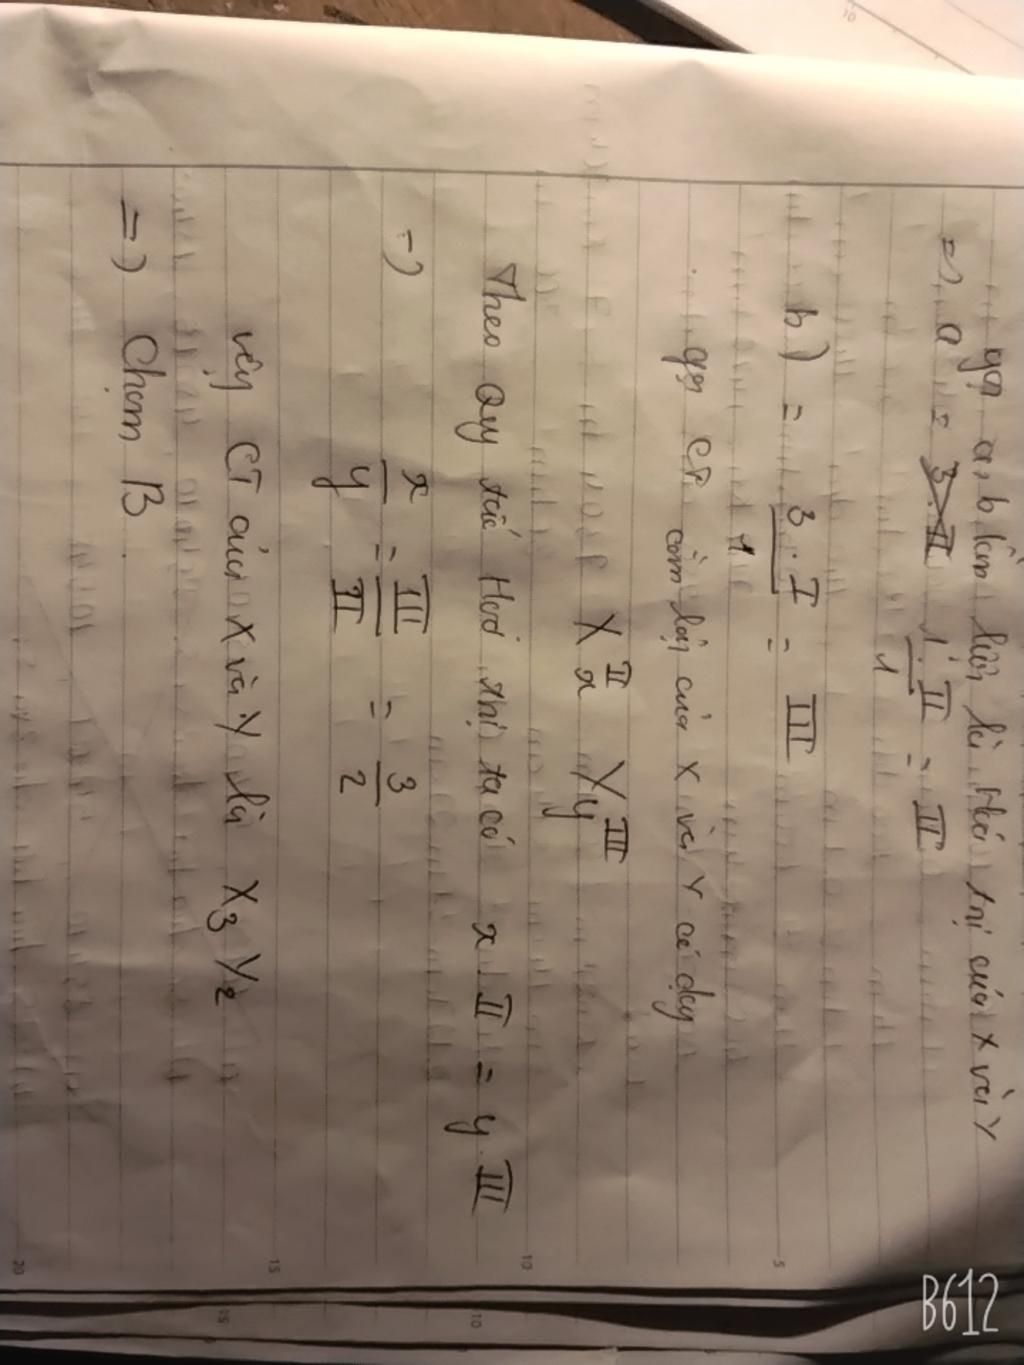 gọi a, b lần lượt là Hoá trị của X và Y
=) a = 1.II/1 = II
b) = 3.I/1 = III
gọi CT của X và Y có dạng
X^II_x Y^III_y
Theo Quy tắc Hoá trị ta có x.II = y.III
=) x/y = III/II = 3/2
vậy CT của X và Y là X3Y2
=) Chọn B.
5
10
15
20
10
15
10
B612